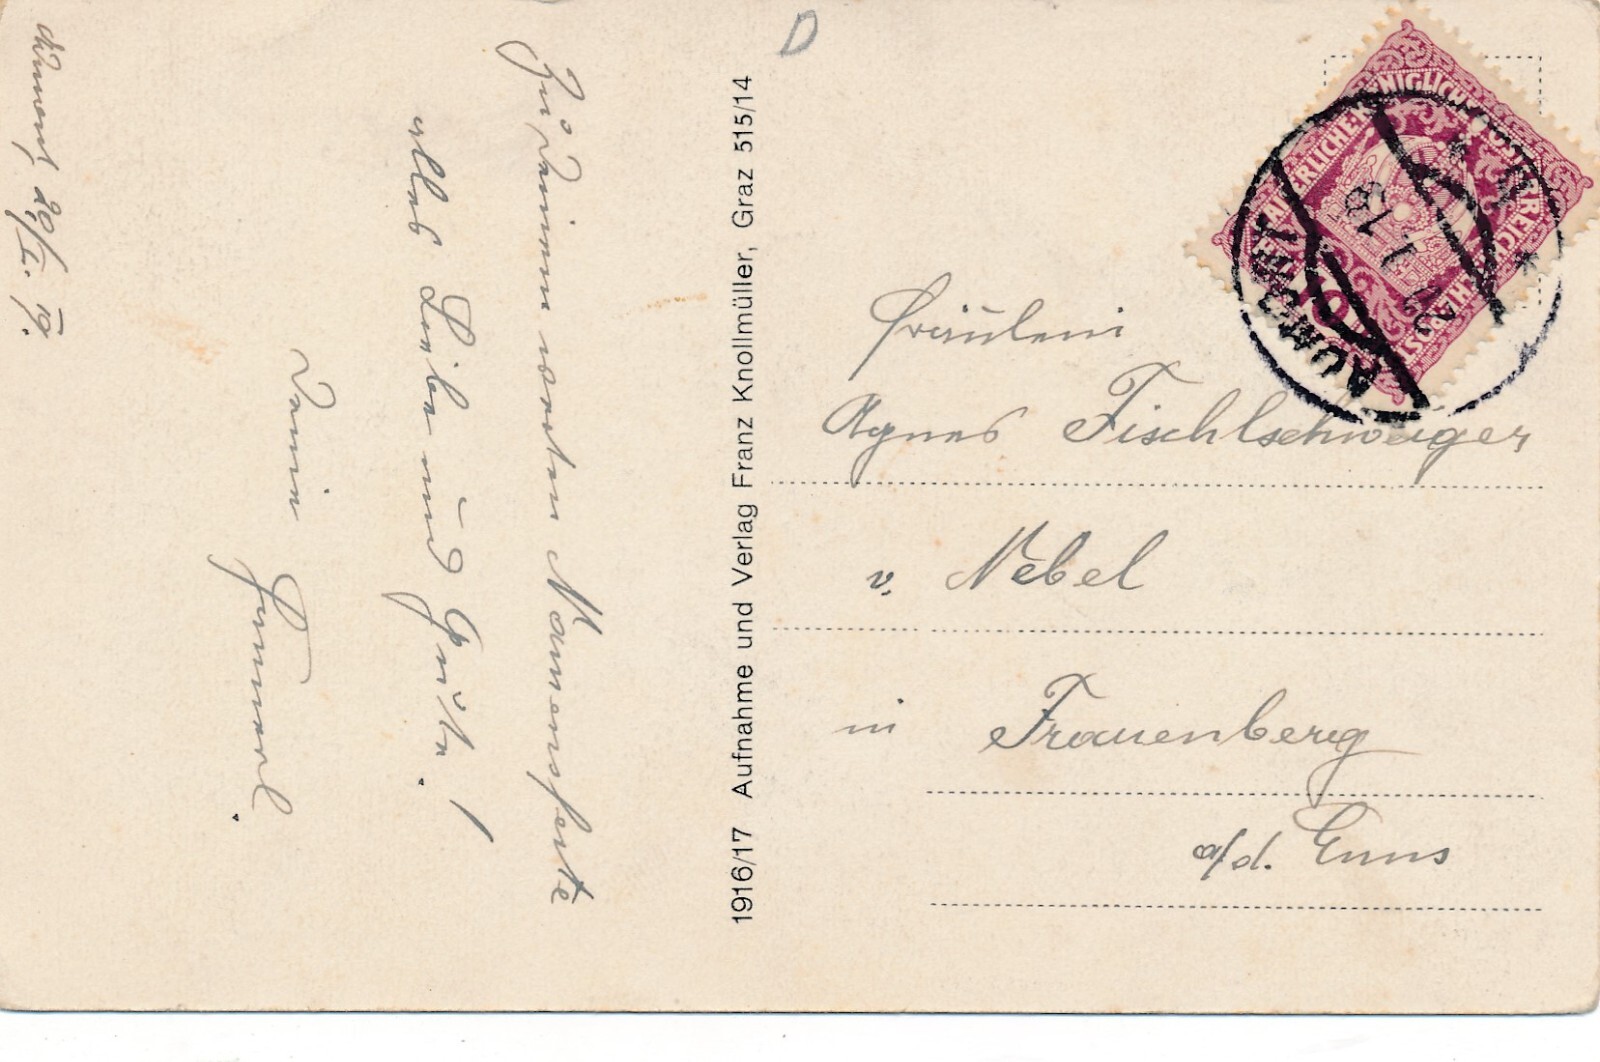 D
Zu Deinem werten Namensfeste
alles Liebe und Gute!
Deine
20/I. 19.
1916/17 Aufnahme und Verlag Franz Knollmüller, Graz 515/14
Fräulein
Agnes Fischlschweiger
v. Nebel
in Frauenberg
a/d. Enns
KAISERLICHE KÖNIGLICHE ÖSTERREICHISCHE POST